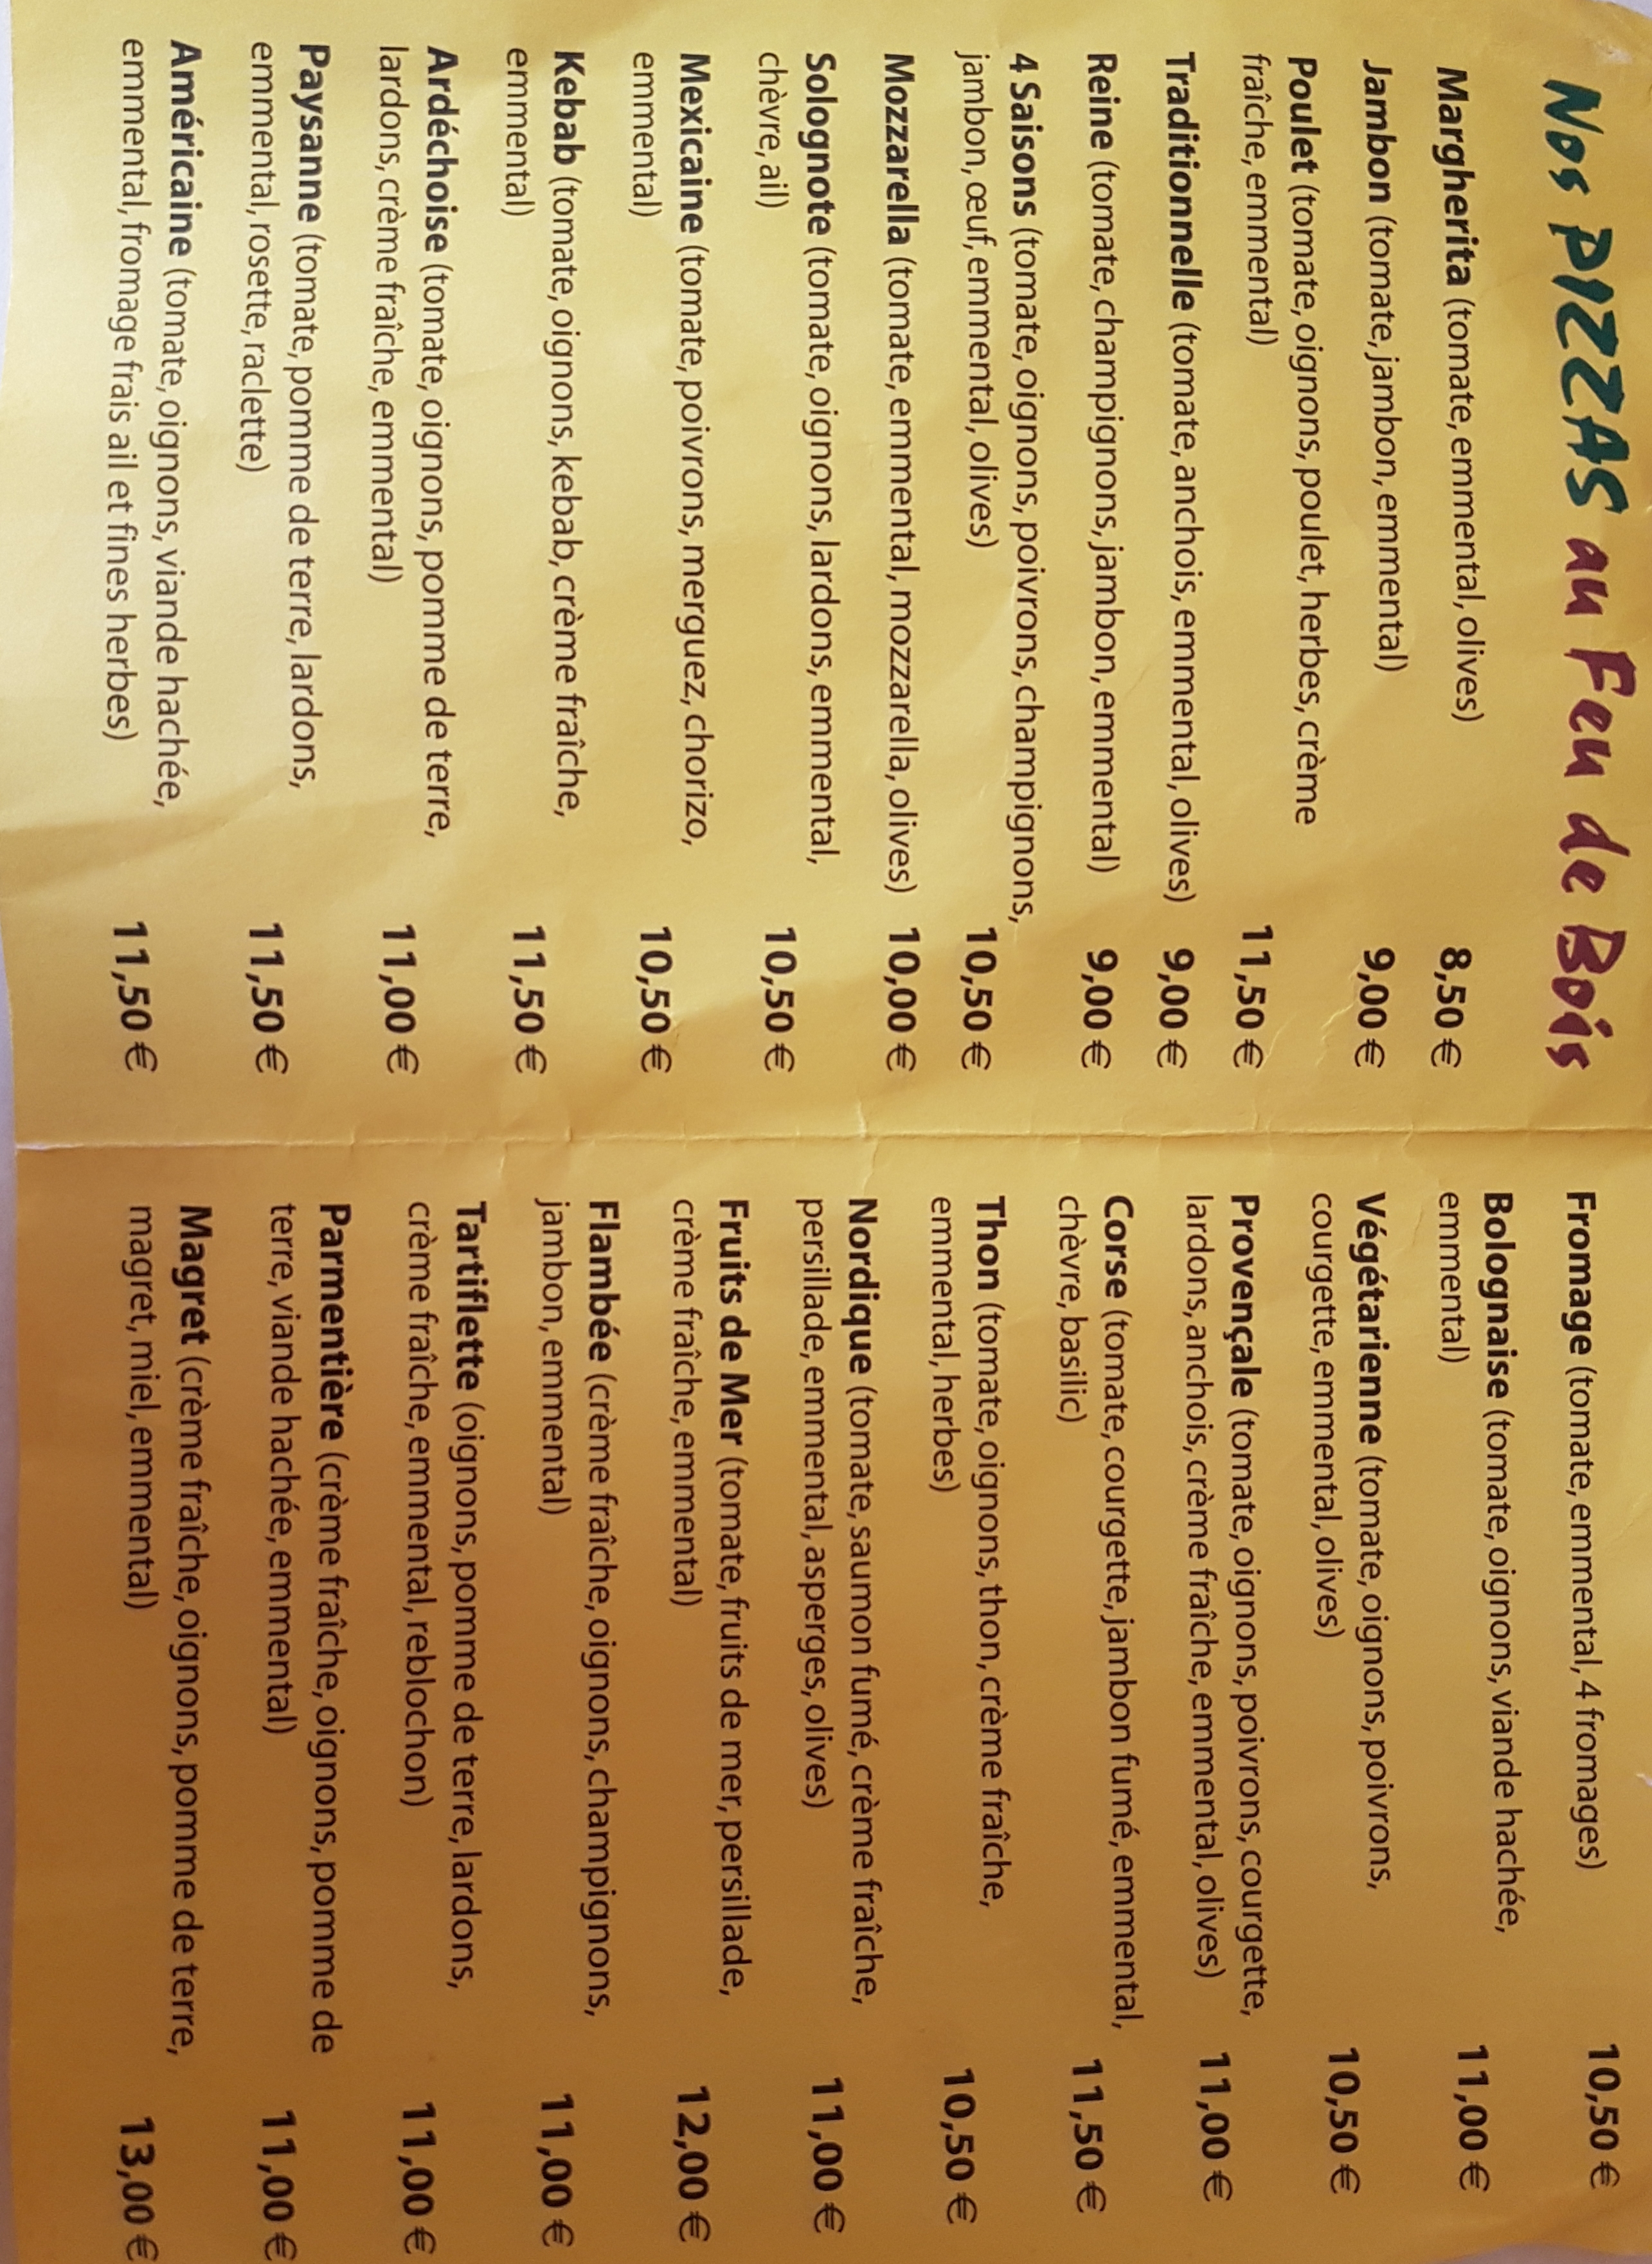 Nos PIZZAS au Feu de Bois
Margherita (tomate, emmental, olives) 8,50 €
Jambon (tomate, jambon, emmental) 9,00 €
Poulet (tomate, oignons, poulet, herbes, crème
fraîche, emmental) 11,50 €
Traditionnelle (tomate, anchois, emmental, olives) 9,00 €
Reine (tomate, champignons, jambon, emmental) 9,00 €
4 Saisons (tomate, oignons, poivrons, champignons,
jambon, œuf, emmental, olives) 10,50 €
Mozzarella (tomate, emmental, mozzarella, olives) 10,00 €
Solognote (tomate, oignons, lardons, emmental,
chèvre, ail) 10,50 €
Mexicaine (tomate, poivrons, merguez, chorizo,
emmental) 10,50 €
Kebab (tomate, oignons, kebab, crème fraîche,
emmental) 11,50 €
Ardéchoise (tomate, oignons, pomme de terre,
lardons, crème fraîche, emmental) 11,00 €
Paysanne (tomate, pomme de terre, lardons,
emmental, rosette, raclette) 11,50 €
Américaine (tomate, oignons, viande hachée,
emmental, fromage frais ail et fines herbes) 11,50 €
Fromage (tomate, emmental, 4 fromages) 10,50 €
Bolognaise (tomate, oignons, viande hachée,
emmental) 11,00 €
Végétarienne (tomate, oignons, poivrons,
courgette, emmental, olives) 10,50 €
Provençale (tomate, oignons, poivrons, courgette,
lardons, anchois, crème fraîche, emmental, olives) 11,00 €
Corse (tomate, courgette, jambon fumé, emmental,
chèvre, basilic) 11,50 €
Thon (tomate, oignons, thon, crème fraîche,
emmental, herbes) 10,50 €
Nordique (tomate, saumon fumé, crème fraîche,
persillade, emmental, asperges, olives) 11,00 €
Fruits de Mer (tomate, fruits de mer, persillade,
crème fraîche, emmental) 12,00 €
Flambée (crème fraîche, oignons, champignons,
jambon, emmental) 11,00 €
Tartiflette (oignons, pomme de terre, lardons,
crème fraîche, emmental, reblochon) 11,00 €
Parmentière (crème fraîche, oignons, pomme de
terre, viande hachée, emmental) 11,00 €
Magret (crème fraîche, oignons, pomme de terre,
magret, miel, emmental) 13,00 €